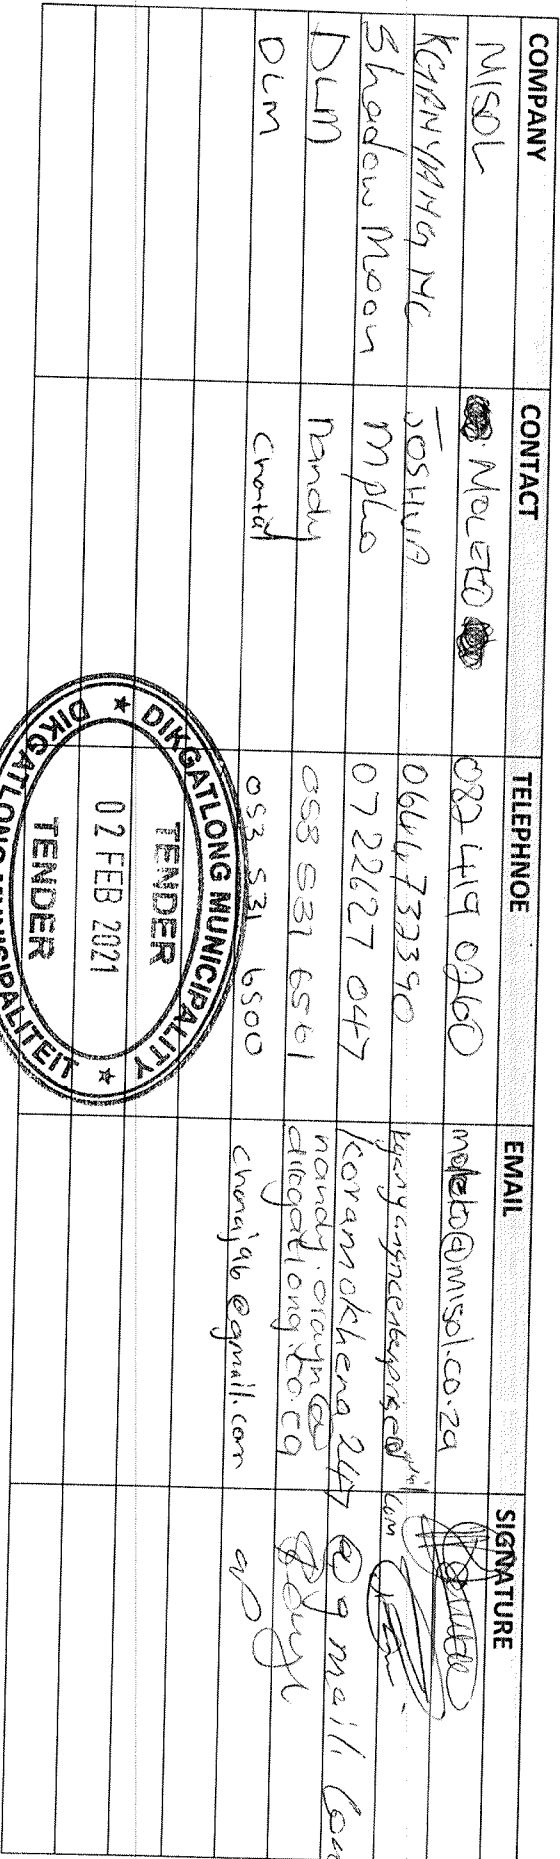 COMPANY CONTACT TELEPHNOE EMAIL SIGNATURE
MISOL MOLEKO 082 419 0260 moleko@misol.co.za
KGANYANG MC JOSHUA 0644732390
Shadow Moon Mpho 0722627 047 koramokhena247@gmail.com
DLM Nandy 053 531 6561 nandy.
dikgatlong.co.za
DLM Chantal 053 531 6500 chanaj96@gmail.com
DIKGATLONG MUNICIPALITY
TENDER
02 FEB 2021
TENDER
DIKGATLONG MUNICIPALITEIT